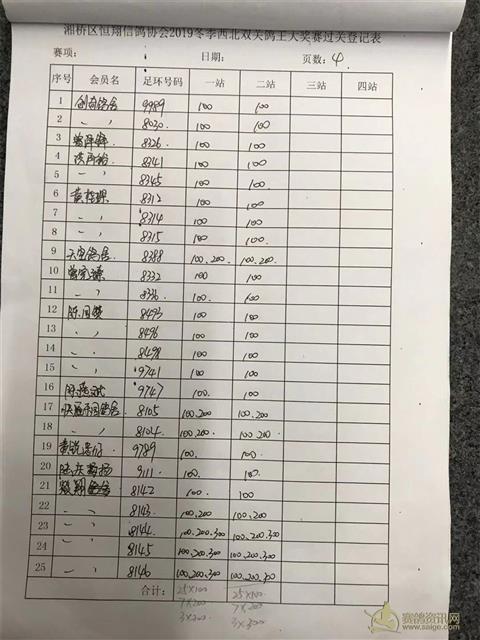 湘桥区恒翔信鸽协会2019冬季西北双关鸽王大奖赛过关登记表
赛项： 日期： 页数：4
序号 会员名 足环号码 一站 二站 三站 四站
1 创奇鸽舍 9989 100 100
2 〃 8030 100 100
3 8326 100 100
4 8341 100 100
5 〃 8345 100 100
6 8312 100 100
7 〃 8314 100 100
8 〃 8315 100 100
9 鸽舍 8388 100.200 100.200
10 8332 100 100
11 〃 8336 100 100
12 8493 100 100
13 〃 8496 100 100
14 〃 8498 100 100
15 〃 9741 100 100
16 9747 100 100
17 鸽舍 8105 100.200 100.200
18 〃 8104 100.200 100.200
19 9789 100 100
20 9111 100 100
21 翔鸽舍 8142 100 100
22 〃 8143 100.200 100.200
23 〃 8144 100.200.300 100.200.300
24 〃 8145 100.200.300 100.200.300
25 〃 8146 100.200.300 100.200.300
合计： 25×100 25×100
7×200 7×200
3×300 3×300
赛鸽资讯网
www.saige.com